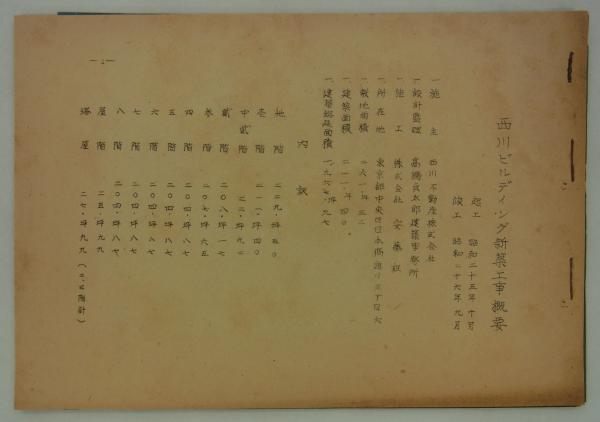 西川ビルディング新築工事概要
起工 昭和二十五年十月
竣工 昭和二十六年九月
一、施主 西川不動産株式会社
一、設計監理 高橋貞太郎建築事務所
一、施工 株式会社 安藤組
一、所在地 東京都中央区日本橋通り三丁目六
一、敷地面積 二六一・坪五二
一、建築面積 二一一・坪四〇
一、建築総延面積 一、九六七・坪九七
内訳
地階 二二九・坪五〇
壱階 二一一・坪四〇
中弐階 二二・坪九二
弐階 二〇八・坪一七
参階 二〇七・坪六五
四階 二〇四・坪八七
五階 二〇四・坪八七
六階 二〇四・坪八七
七階 二〇四・坪八七
八階 二〇四・坪八七
屋階 二五・坪九九
塔屋 二七・坪九九
— 1 —